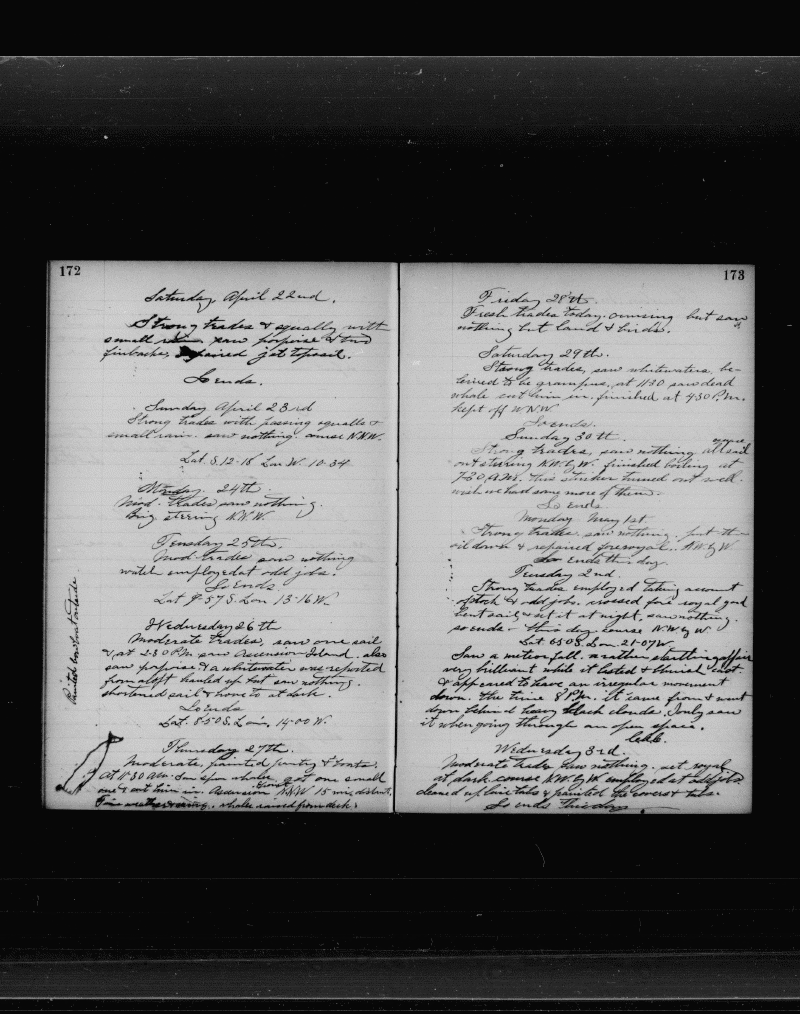 172
Saturday April 22nd.
Strong trades & squally with
small rain saw porpoise & two
finbacks, repaired jet topsail.
So ends.
Sunday April 23rd
Strong trades with passing squalls &
small rain. saw nothing. course N.N.W.
Lat. S. 12-18 Lon W. 10-34
Monday 24th.
Mod. trades saw nothing.
Brig steering N.W.
Tuesday 25th.
Mod. trades saw nothing
watch employed at odd jobs.
So ends
Lat 9-57 S. Lon 13-16 W.
Wednesday 26th
Moderate trades, saw one sail
& at 2.30 P.M. saw Ascension Island. also
saw porpoise & a whitewater was reported
from aloft hauled up but saw nothing.
shortened sail & hove to at dark.
So ends
Lat. 8-50 S. Lon 14-00 W.
Painted bow boat outside
Thursday 27th.
Moderate, painted pantry & boats.
At 11-30 A.M. saw spm whales, got one small
one & cut him in. Ascension N.N.W 15 mis distant.
Fine weather whales raised from deck.
173
Friday 28th.
Fresh trades today. cruising but saw
nothing but land & birds.
Saturday 29th.
Strong trades, saw whitewaters. be-
leived to be grampus, at 11-30 saw dead
whale cut him in. finished at 4-30 P.M.
kept off W.N.W.
So ends.
Sunday 30th.
Strong trades, saw nothing all sail
out steering N.W. by W. finished boiling at
7-30 A.M. this stinker turned out well.
wish we had some more of them.
So ends
Monday May 1st
Strong trades saw nothing. put the
oil down & repaired foreroyal. N.W. by W
So ends this day.
Tuesday 2nd.
Strong trades employed taking account
of stock & odd jobs. crossed fore royal yard
bent sail & set it at night, saw nothing.
so ends this day course N.W. by W.
Lat. 6-50 S. Lon. 21-07 W.
Saw a meteor fall. a rather startling affair
very brilliant while it lasted &
& appeared to have an irregular movement
down. the time 8 P.M. it came from & went
down behind heavy black clouds, I only saw
it when going through an open space.
Wednesday 3rd.
Moderate trades saw nothing. set royal
at dark course N.W. by W. employed at odd jobs
cleaned up line tubs & painted the covers & tubs.
So ends this day